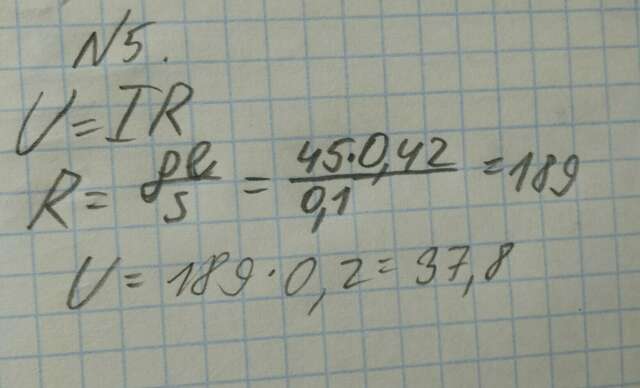 N5.
U=IR
R= ρl/s = 45·0,42/0,1 =189
U= 189·0,2= 37,8